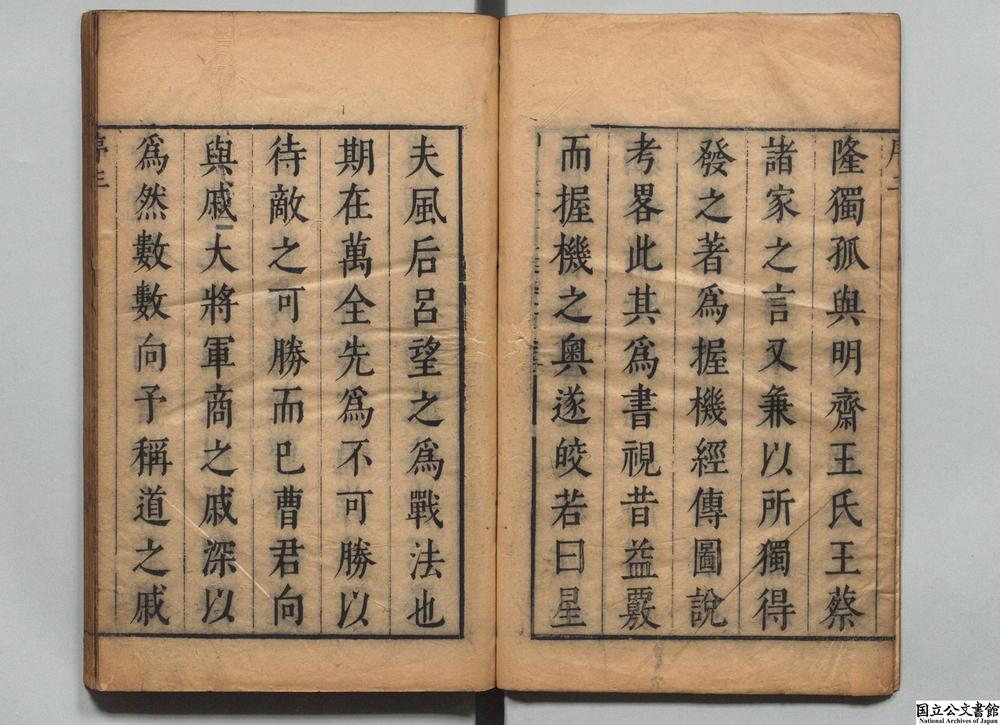 隆獨孤與明齋王氏王蔡
諸家之言又兼以所獨得
發之著爲握機經傳圖說
考畧此其爲書視昔益覈
而握機之奧遂皎若日星
夫風后呂望之爲戰法也
期在萬全先爲不可勝以
待敵之可勝而已曹君向
與戚大將軍商之戚深以
爲然數數向予稱道之戚
国立公文書館
National Archives of Japan